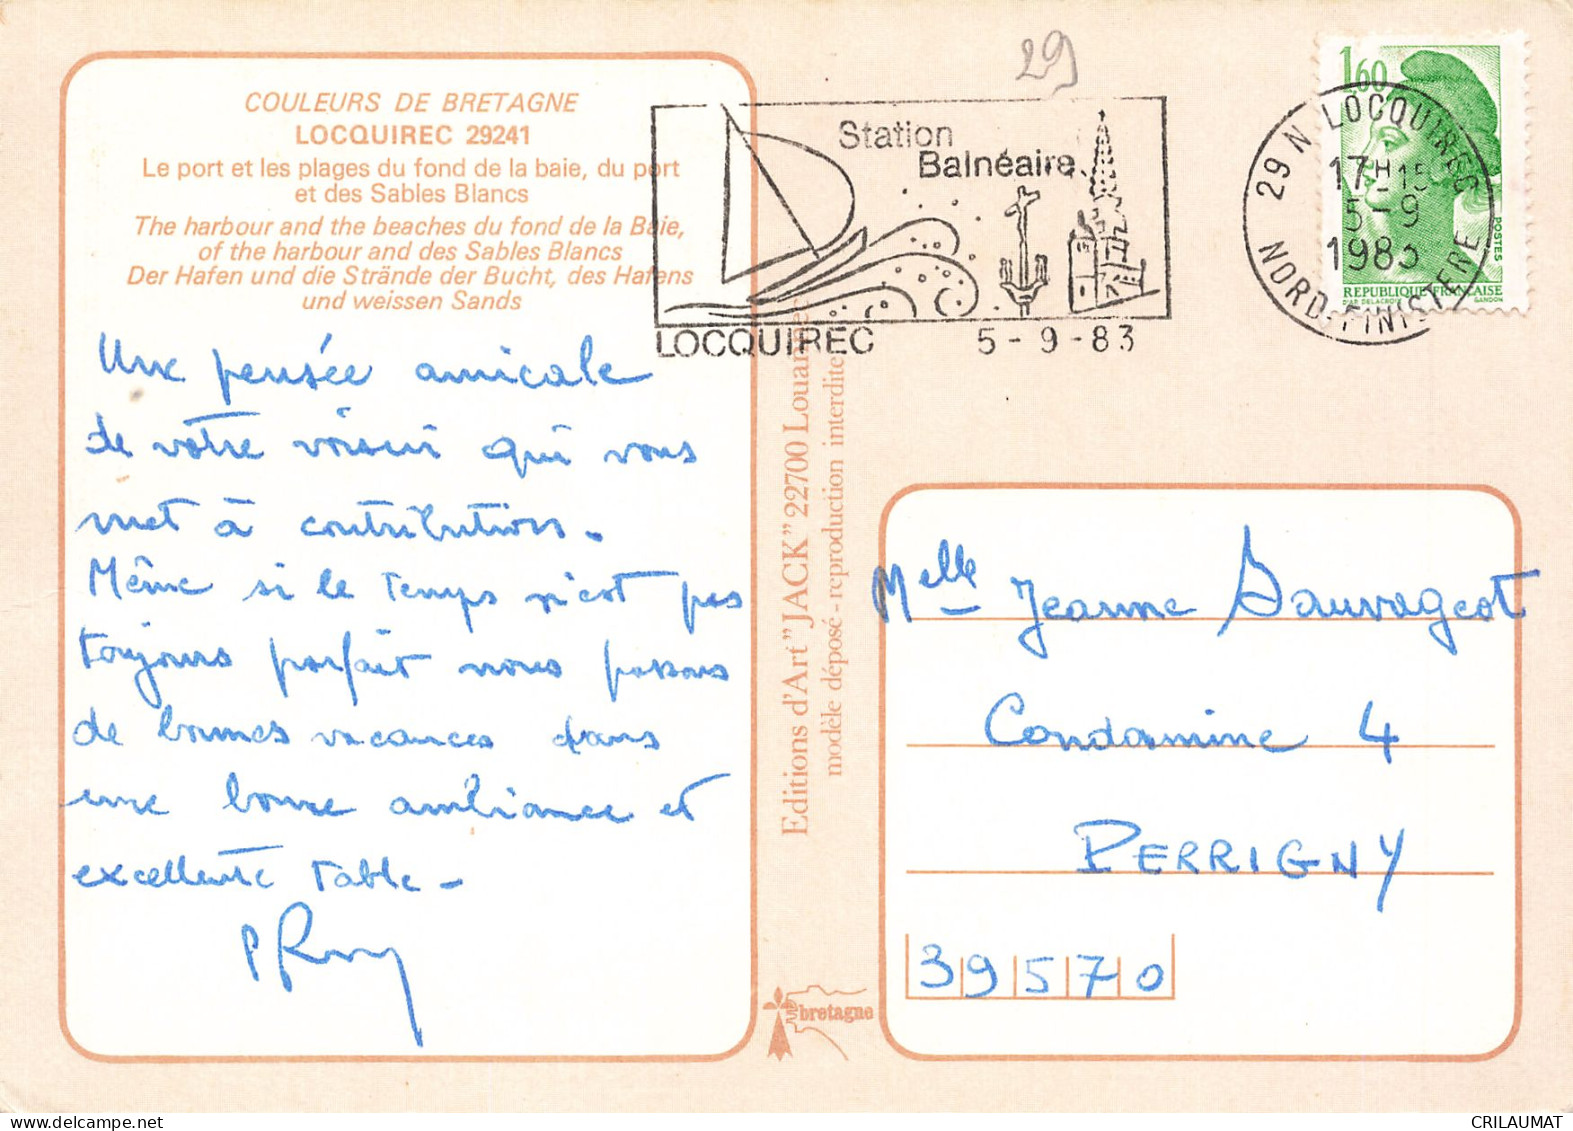 COULEURS DE BRETAGNE
LOCQUIREC 29241
Le port et les plages du fond de la baie, du port
et des Sables Blancs
The harbour and the beaches du fond de la Baie,
of the harbour and des Sables Blancs
Der Hafen und die Strände der Bucht, des Hafens
und weissen Sands
Une pensée amicale
de votre voisin qui vous
met à contribution.
Même si le temps n'est pas
toujours parfait nous passons
de bonnes vacances dans
une bonne ambiance et
excellente table -
29
Station
Balnéaire
LOCQUIREC 5-9-83
29 N LOCQUIREC
17H15
5-9
1983
NORD-FINISTERE
1,60
POSTES
REPUBLIQUE FRANCAISE
D'AP. DELACROIX GANDON
Editions d'Art "JACK" 22700 Louannec
modèle déposé - reproduction interdite
bretagne
Melle Jeanne Sauvageot
Condamine 4
PERRIGNY
39570
CRILAUMAT